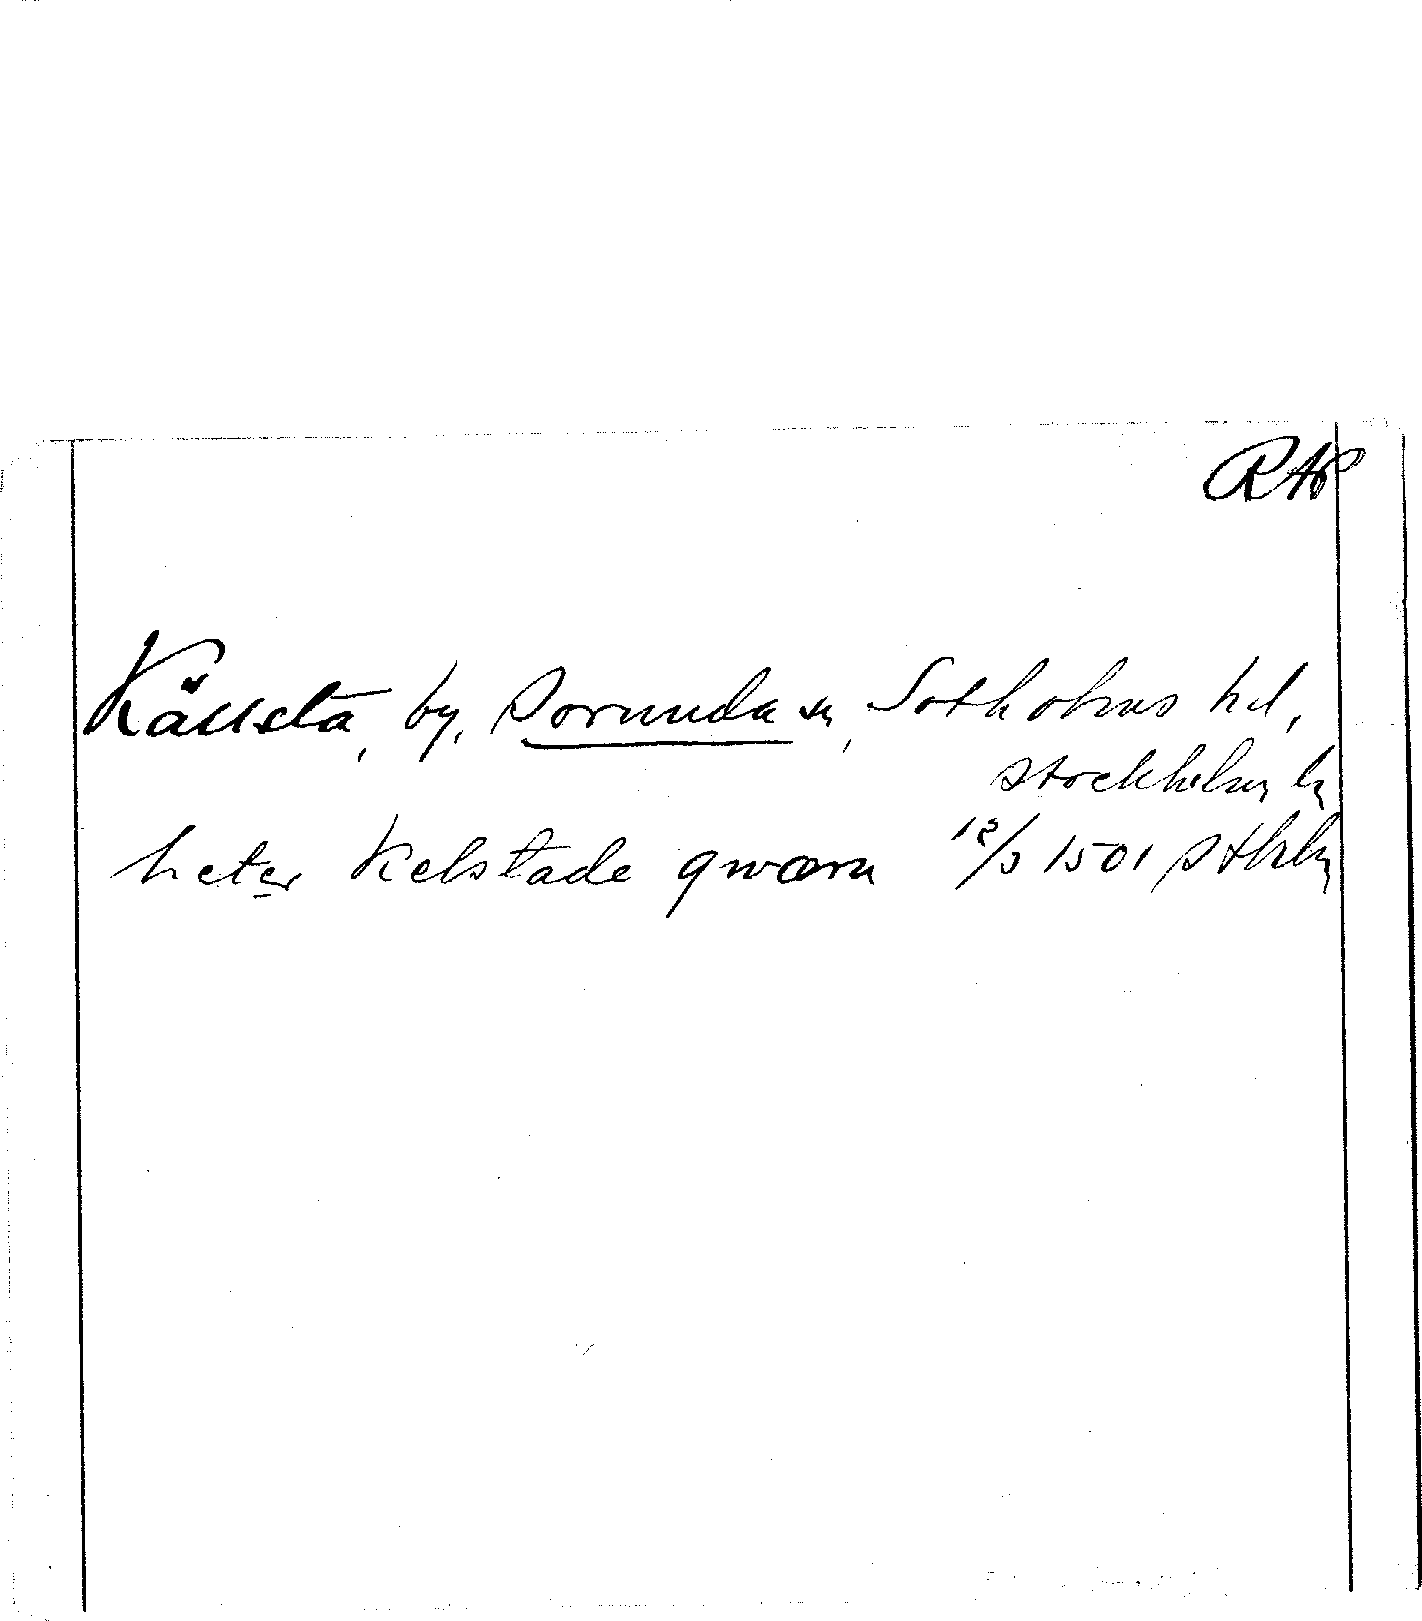 RAP
Källsta, by, Sorunda sn, Sotholms hd,
Stockholms ln
heter Kelstade qwærn 12/3 1501 Sthlm